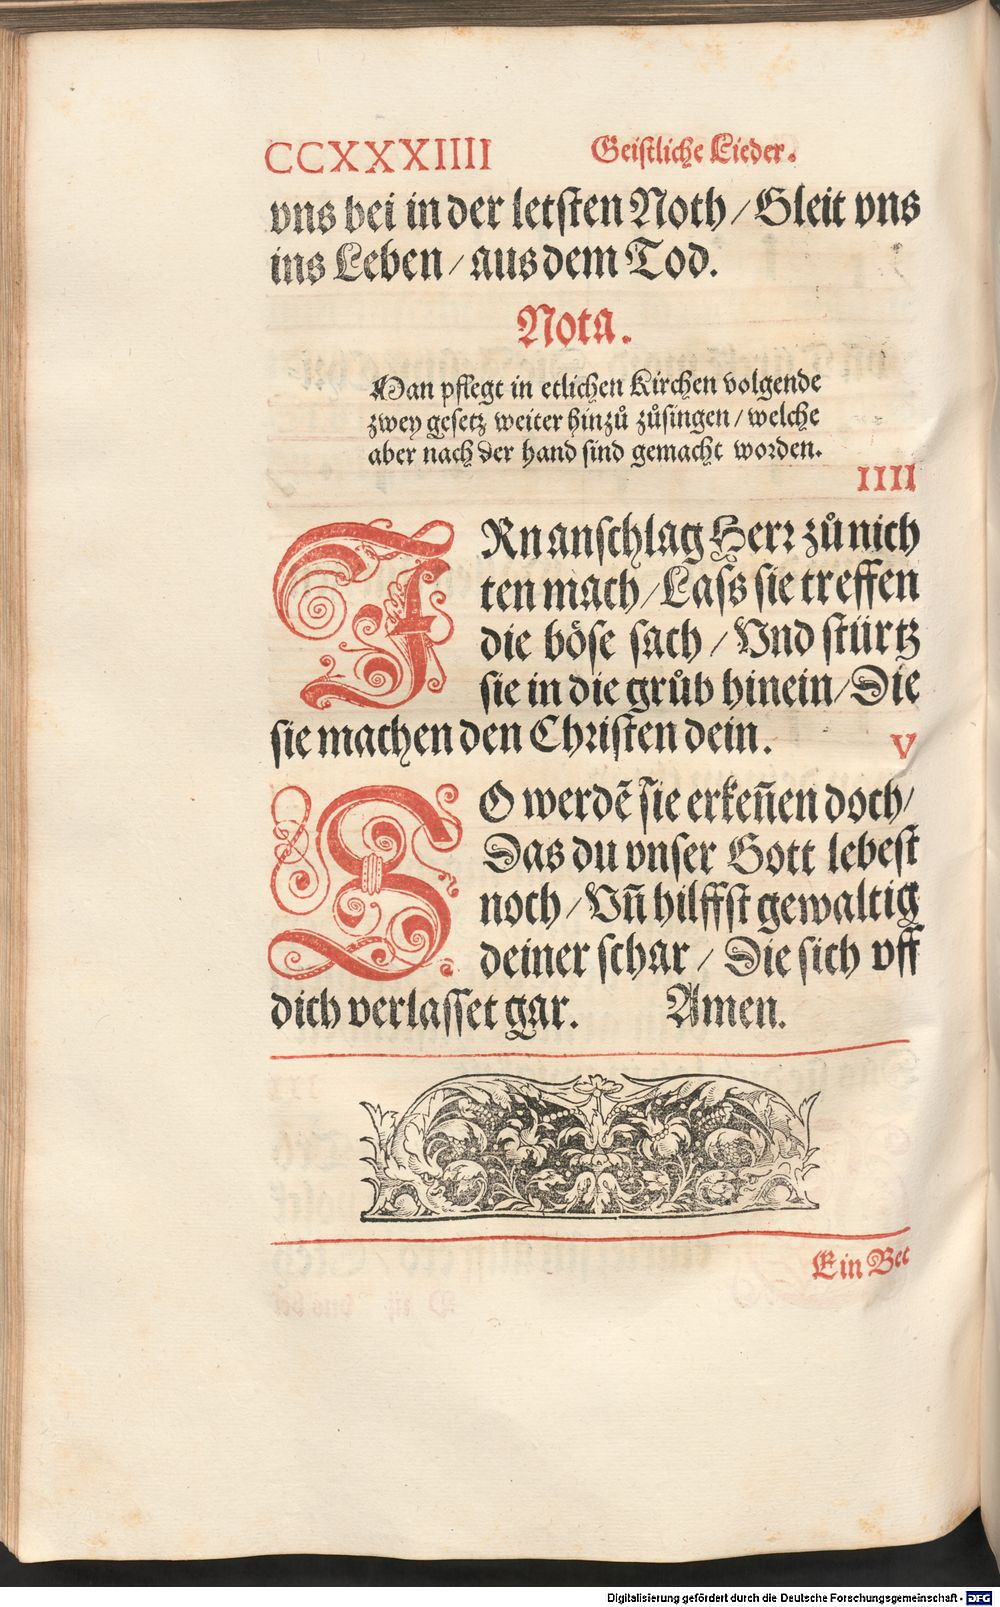 CCXXXIIII Geistliche Lieder.
vns bei in der letsten Noth / Gleit vns
ins Leben / aus dem Tod.
Nota.
Man pflegt in etlichen Kirchen volgende
zwey gesetz weiter hinzů zůsingen / welche
aber nach der hand sind gemacht worden.
IIII
IRn anschlag Herr zů nich
ten mach / Lass sie treffen
die böse sach / Vnd stürtz
sie in die grůb hinein / Die
sie machen den Christen dein.
V
SO werdē sie erkeñen doch /
Das du vnser Gott lebest
noch / Vñ hilffst gewaltig
deiner schar / Die sich vff
dich verlasset gar. Amen.
Ein Bet
Digitalisierung gefördert durch die Deutsche Forschungsgemeinschaft - DFG